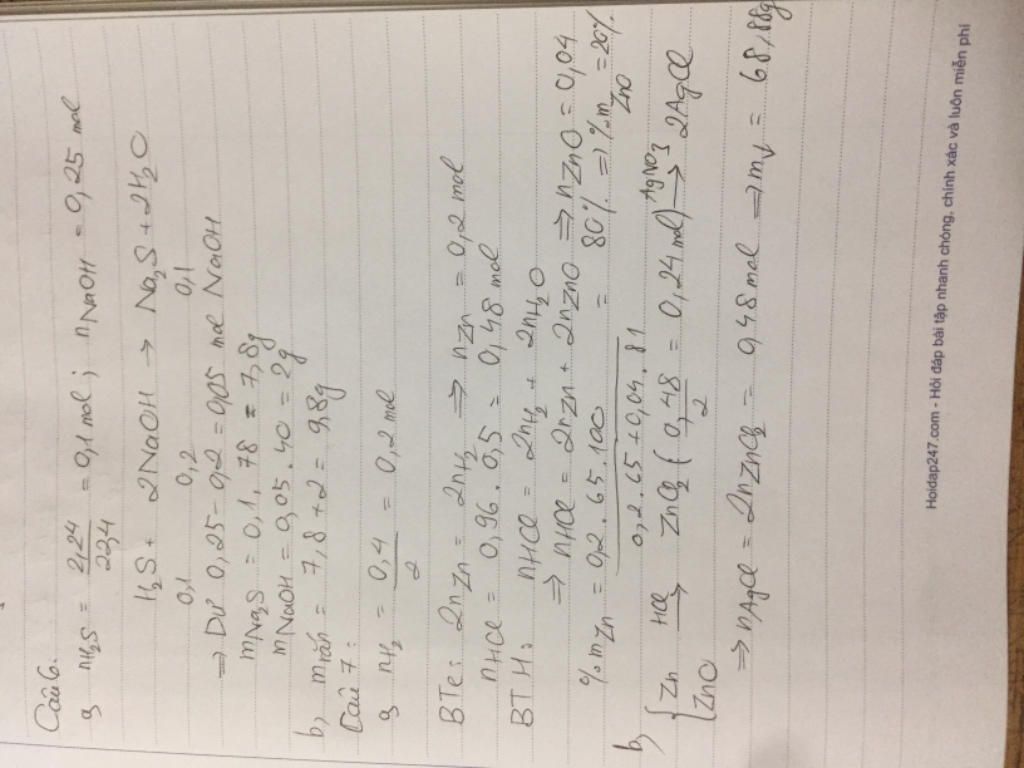 Câu 6.
a, nH2S = 2,24/22,4 = 0,1 mol ; nNaOH = 0,25 mol
H2S + 2NaOH → Na2S + 2H2O
0,1 0,2 0,1
⇒ Dư 0,25 - 0,2 = 0,05 mol NaOH
mNa2S = 0,1 . 78 = 7,8g
mNaOH = 0,05 . 40 = 2g
b, mrắn = 7,8 + 2 = 9,8g
Câu 7:
a, nH2 = 0,4/2 = 0,2 mol
BTe: 2nZn = 2nH2 ⇒ nZn = 0,2 mol
nHCl = 0,96 . 0,5 = 0,48 mol
BTH: nHCl = 2nH2 + 2nH2O
⇒ nHCl = 2nZn + 2nZnO ⇒ nZnO = 0,04
%mZn = 0,2 . 65 . 100/0,2 . 65 + 0,04 . 81 = 80% ⇒ %mZnO = 20%
b, {Zn ZnO HCl→ ZnCl2 (0,48/2 = 0,24 mol) AgNO3→ 2AgCl
⇒ nAgCl = 2nZnCl2 = 0,48 mol ⇒ m↓ = 68,88g
Hoidap247.com - Hỏi đáp bài tập nhanh chóng, chính xác và luôn miễn phí